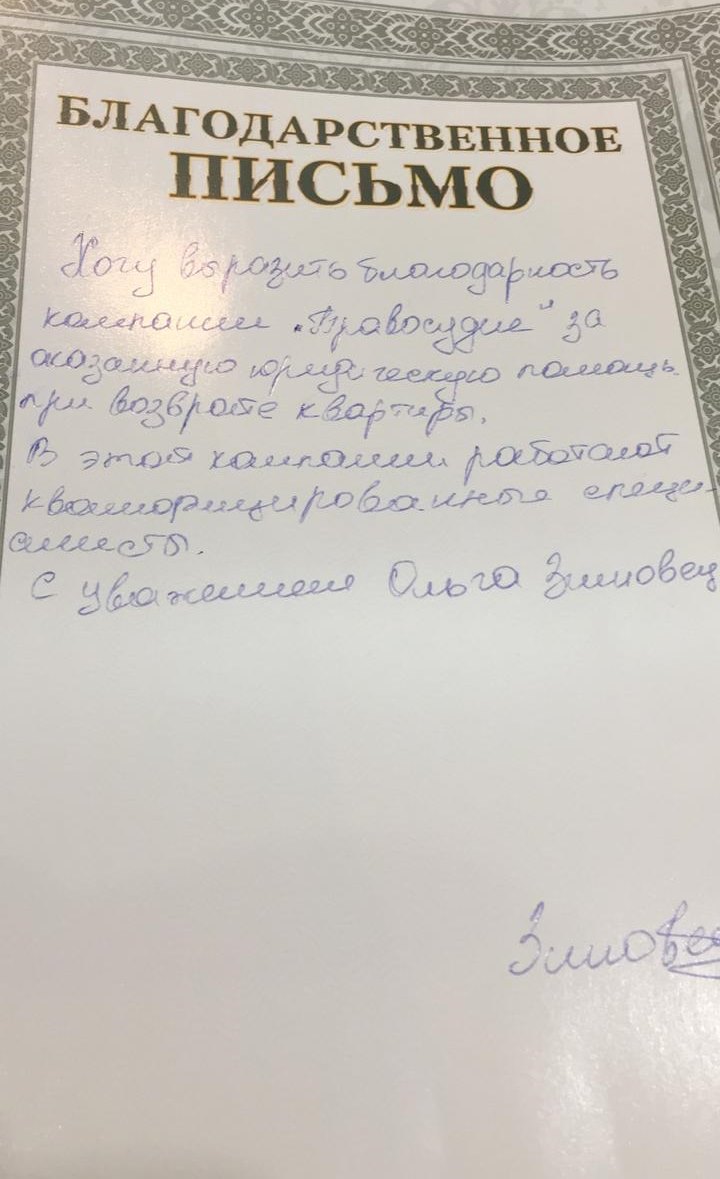 БЛАГОДАРСТВЕННОЕ
ПИСЬМО
Хочу выразить благодарность
компании „Правосудие" за
оказанную юридическую помощь
при возврате квартиры.
В этой компании работают
квалифицированные специ-
алисты.
С уважением Ольга Зиновец
Зиновец